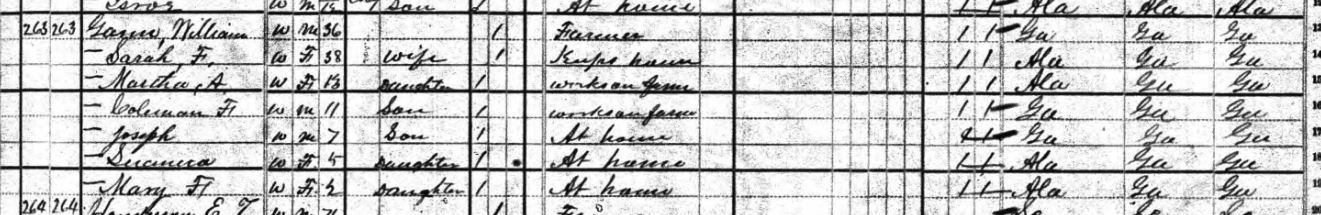 W M Son At home 1 1 Ala Ala Ala
263 263 Gann, William W M 36 1 Farmer 1 1 Ga Ga Ga
— Sarah, F. W F 38 Wife 1 Keeps house 1 1 Ala Ga Ga
— Martha, A. W F 13 Daughter 1 works on farm 1 1 Ala Ga Ga
— Coleman F W M 11 Son 1 works on farm 1 1 Ga Ga Ga
— Joseph W M 7 Son 1 At home 1 1 Ga Ga Ga
— W F 5 Daughter 1 At home 1 1 Ala Ga Ga
— Mary F W F 2 Daughter 1 At home 1 1 Ala Ga Ga
264 264 E. T. W M